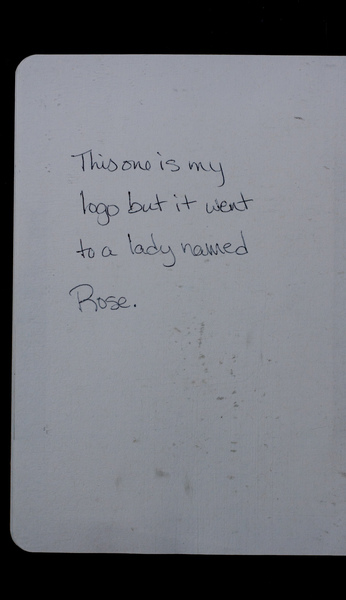 This one is my
logo but it went
to a lady named
Rose.